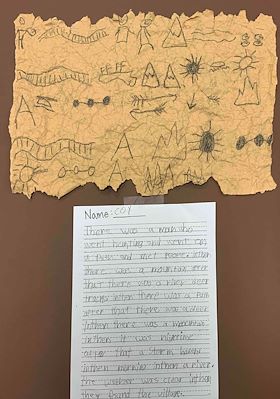 Name: COY
There was a man who
went hunting and went on
a path and met more. inthen
there was a mountin after
that there was a river deer
tracks inthen there was a sun
after that there was a river
inthen there was a mountin
inthen it was nightime
after that a storm
inthen morning inthen a river.
the weather was clear inthen
they found the village.